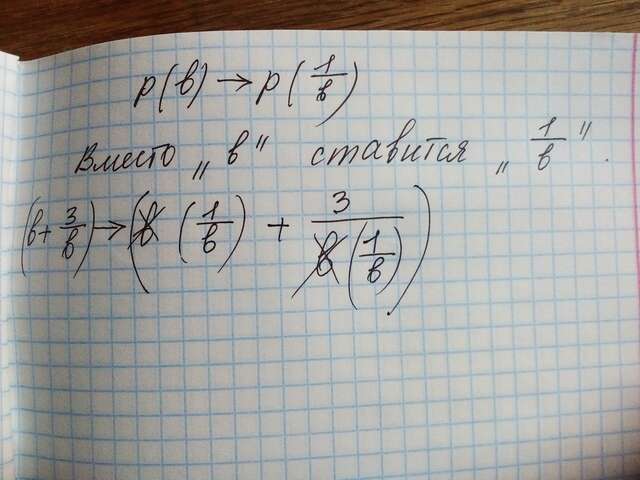 p(b) → p(1/b)
Вместо „b" ставится „1/b".
(b + 3/b) → (b (1/b) + 3/b(1/b))